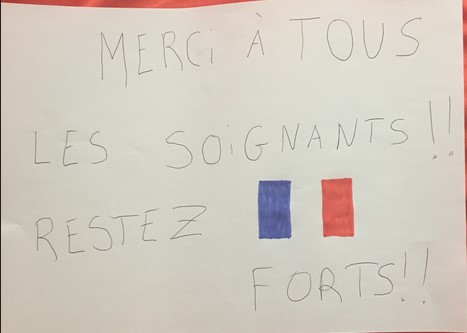 MERCi À TOUS
LES SOiGNANTS!!
RESTEZ
FORTS!!